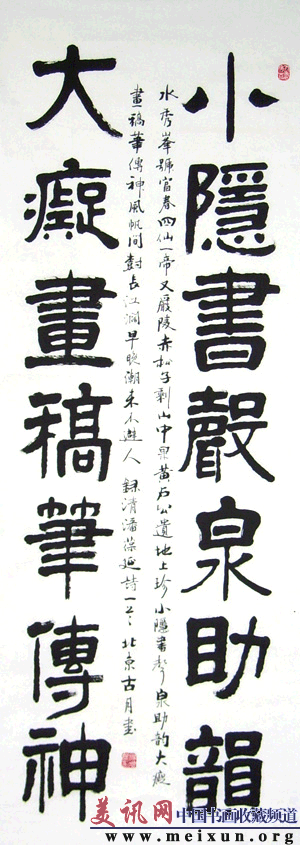 小隱書聲泉助韻
水秀峯號富春四仙一帝又嚴陵赤松子剩山中泉黃石公遺地上珍小隱書聲泉助韵大癡
畫稿筆傳神風帆同對長江濶早晚潮來不避人 録清潘葆延詩一首 北京古月書
大癡畫稿筆傳神
美讯网 中国书画收藏频道
www.meixun.org